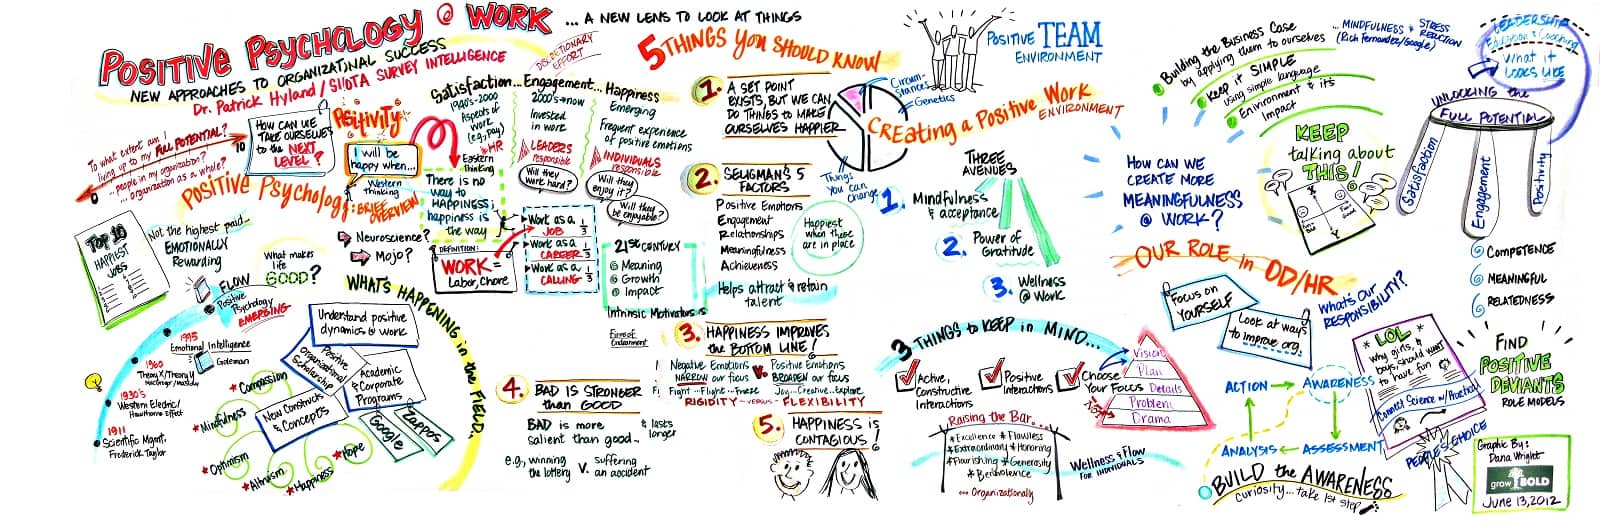 POSITIVE PSYCHOLOGY @ WORK
...A NEW LENS TO LOOK AT THINGS
NEW APPROACHES TO ORGANIZATINAL SUCCESS
Dr. Patrick Hyland / SIROTA SURVEY INTELLIGENCE
To what extent am I
living up to my FULL POTENTIAL?
... people in my organization?
... organization as a whole?
0
10
HOW CAN WE
TAKE OURSELVES
to the NEXT
LEVEL?
POSITIVITY
I will be
happy when...
Western
Thinking
Eastern
Thinking
There is no
way to
HAPPINESS;
happiness is
the way
POSITIVE Psychology: BRIEF
OVERVIEW
TOP 10
HAPPIEST
JOBS
Not the highest paid...
EMOTIONALLY
Rewarding
What makes
life
GOOD?
Neuroscience?
Mojo?
DEFINITION:
WORK =
Labor, Chore
FLOW
Positive
Psychology
EMERGING
1995
Emotional Intelligence
Goleman
1960
Theory X/Theory Y
MacGregor/Maslow
1930's
Western Electric/
Hawthorne Effect
1911
Scientific Mgmt.
Frederick Taylor
WHAT'S HAPPENING in the FIELD...
Understand positive
dynamics @ work
Positive
Organizational
Scholarship
Academic
& Corporate
Programs
New Constructs
& Concepts
Google
Zappos
Compassion
Mindfulness
Optimism
Altruism
Happiness
Hope
Satisfaction... Engagement... Happiness
DISCRETIONARY
EFFORT
1940's-2000
Aspects of
work
(e.g., Pay)
HR
2000's→now
Invested
in work
LEADERS
responsible
Will they
work hard?
Emerging
Frequent experience
of positive emotions
INDIVIDUALS
responsible
Will they
enjoy it?
Will they
be enjoyable?
Work as a
JOB 1/3
Work as a
CAREER 1/3
Work as a
CALLING 1/3
21st CENTURY
Meaning
Growth
Impact
Intrinsic Motivators
5 THINGS YOU SHOULD KNOW
1. A SET POINT
EXISTS, BUT WE CAN
DO THINGS TO MAKE
OURSELVES HAPPIER
Circum-
stances
Genetics
Things
You can
Change
2. SELIGMAN'S 5
FACTORS
Positive Emotions
Engagement
Relationships
Meaningfulness
Achievement
Happiest
when these
are in place
Helps attract & retain
talent
3. HAPPINESS IMPROVES
the BOTTOM LINE!
Negative Emotions
NARROW our focus
Fight...Flight...Freeze
V.
Positive Emotions
BROADEN our focus
Joy...Creative...Explore
RIGIDITY -versus- FLEXIBILITY
4. BAD IS STRONGER
than GOOD
BAD is more
salient than good...
& lasts
longer
e.g., winning
the lottery
V.
suffering
an accident
5. HAPPINESS IS
CONTAGIOUS!
POSITIVE TEAM
ENVIRONMENT
Creating a Positive Work
ENVIRONMENT
THREE
AVENUES
1. Mindfulness
& acceptance
2. Power of
Gratitude
3. Wellness
@ Work
3 THINGS to KEEP in MIND...
Active,
Constructive
Interactions
Positive
Interactions
Choose
Your Focus
Vision
Plan
Details
Problem
Drama
Raising the Bar...
Excellence Flawless
Extraordinary Honoring
Flourishing Generosity
Benevolence
... Organizationally
Wellness & Flow
FOR INDIVIDUALS
Building the Business Case
by applying them to ourselves
Keep it SIMPLE
using simple language
Environment & its
Impact
...MINDFULNESS & STRESS
REDUCTION
(Rich Fernandez/Google)
KEEP
talking about
THIS!
HOW CAN WE
CREATE MORE
MEANINGFULNESS
@ WORK?
OUR ROLE in OD/HR
Focus on
YOURSELF
Look at ways
to improve org.
WHAT'S OUR
RESPONSIBILITY?
ACTION
AWARENESS
ASSESSMENT
ANALYSIS
BUILD the AWARENESS
Curiosity...take 1st step
LEADERSHIP
Education & Coaching
What it
LOOKS LIKE
UNLOCKING the
FULL POTENTIAL
Satisfaction
Engagement
Positivity
COMPETENCE
MEANINGFUL
RELATEDNESS
LOL
Why girls, &
boys, should want
to have fun
PEOPLE'S CHOICE
FIND
POSITIVE
DEVIANTS
ROLE MODELS
Graphic By:
Dana Wright
grow BOLD
JUNE 13, 2012